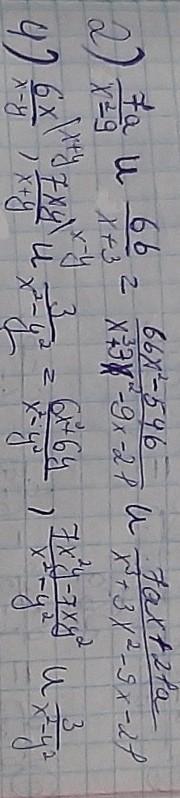 2) 7a/(x²-9) и 6b/(x+3) = (6bx²-54b)/(x³+3x²-9x-27) и (7ax+21a)/(x³+3x²-9x-27)
4) 6x/(x-y) \x+y , 7xy/(x+y) \x-y и 3/(x²-y²) = (6x²+6y)/(x²-y²) , (7x²y-7xy²)/(x²-y²) и 3/(x²-y²)